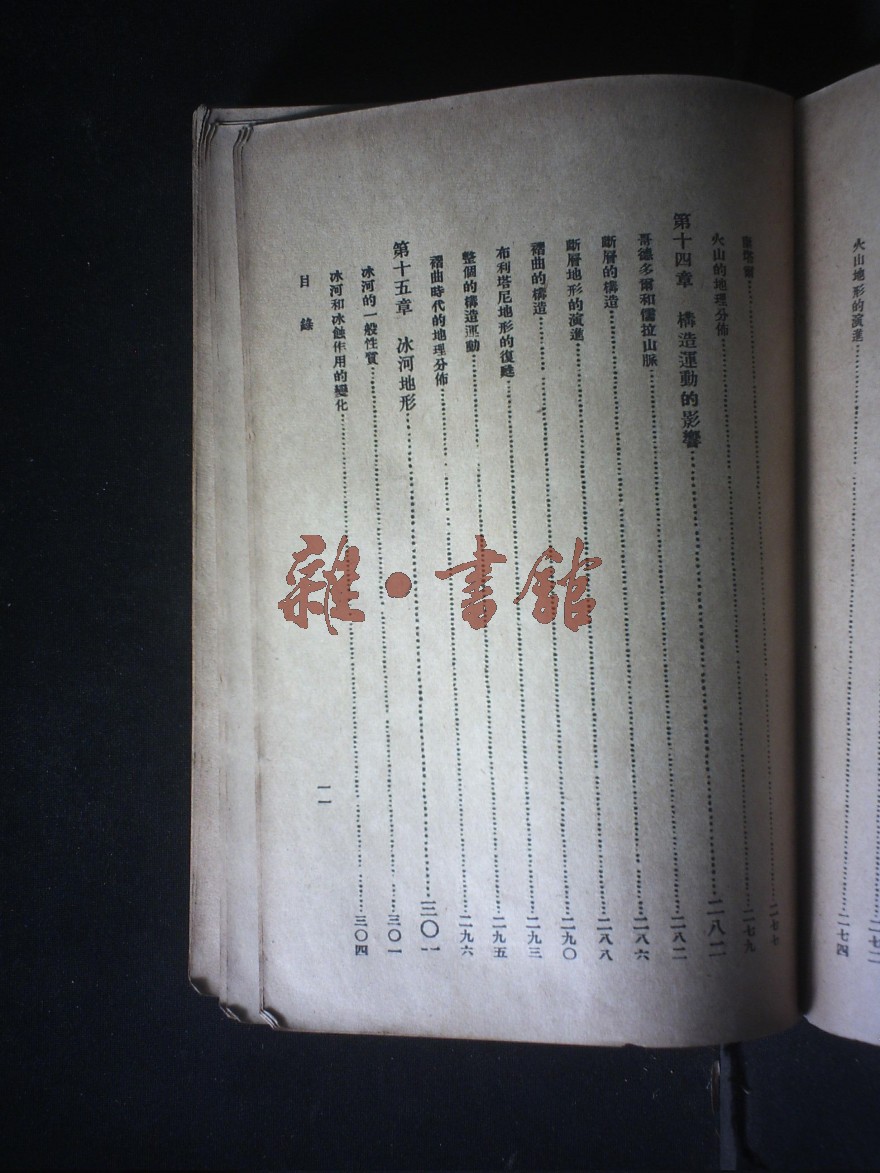 二七二
火山地形的演進……二七四
塔爾……二七七
火山的地理分佈……二七九
第十四章 構造運動的影響……二八二
哥德多爾和儒拉山脈……二八二
斷層的構造……二八六
斷層地形的演進……二八八
褶曲的構造……二九〇
布利塔尼地形的復甦……二九三
整個的構造運動……二九五
褶曲時代的地理分佈……二九六
第十五章 冰河地形……三〇一
冰河的一般性質……三〇一
冰河和冰蝕作用的變化……三〇四
目錄
一一
雜·書館